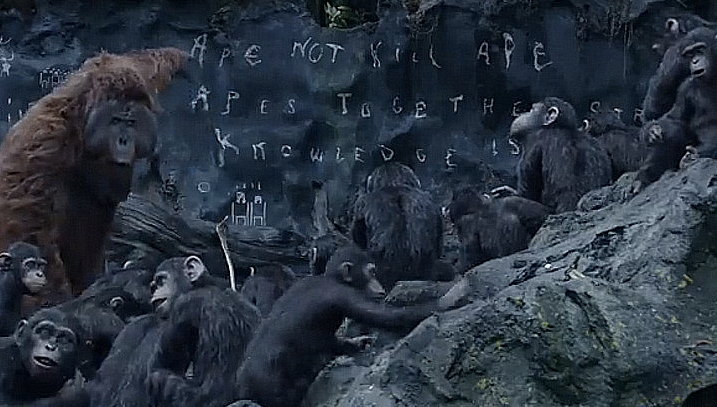 APE NOT KILL APE
APES TOGETHER STR
KNOWLEDGE IS